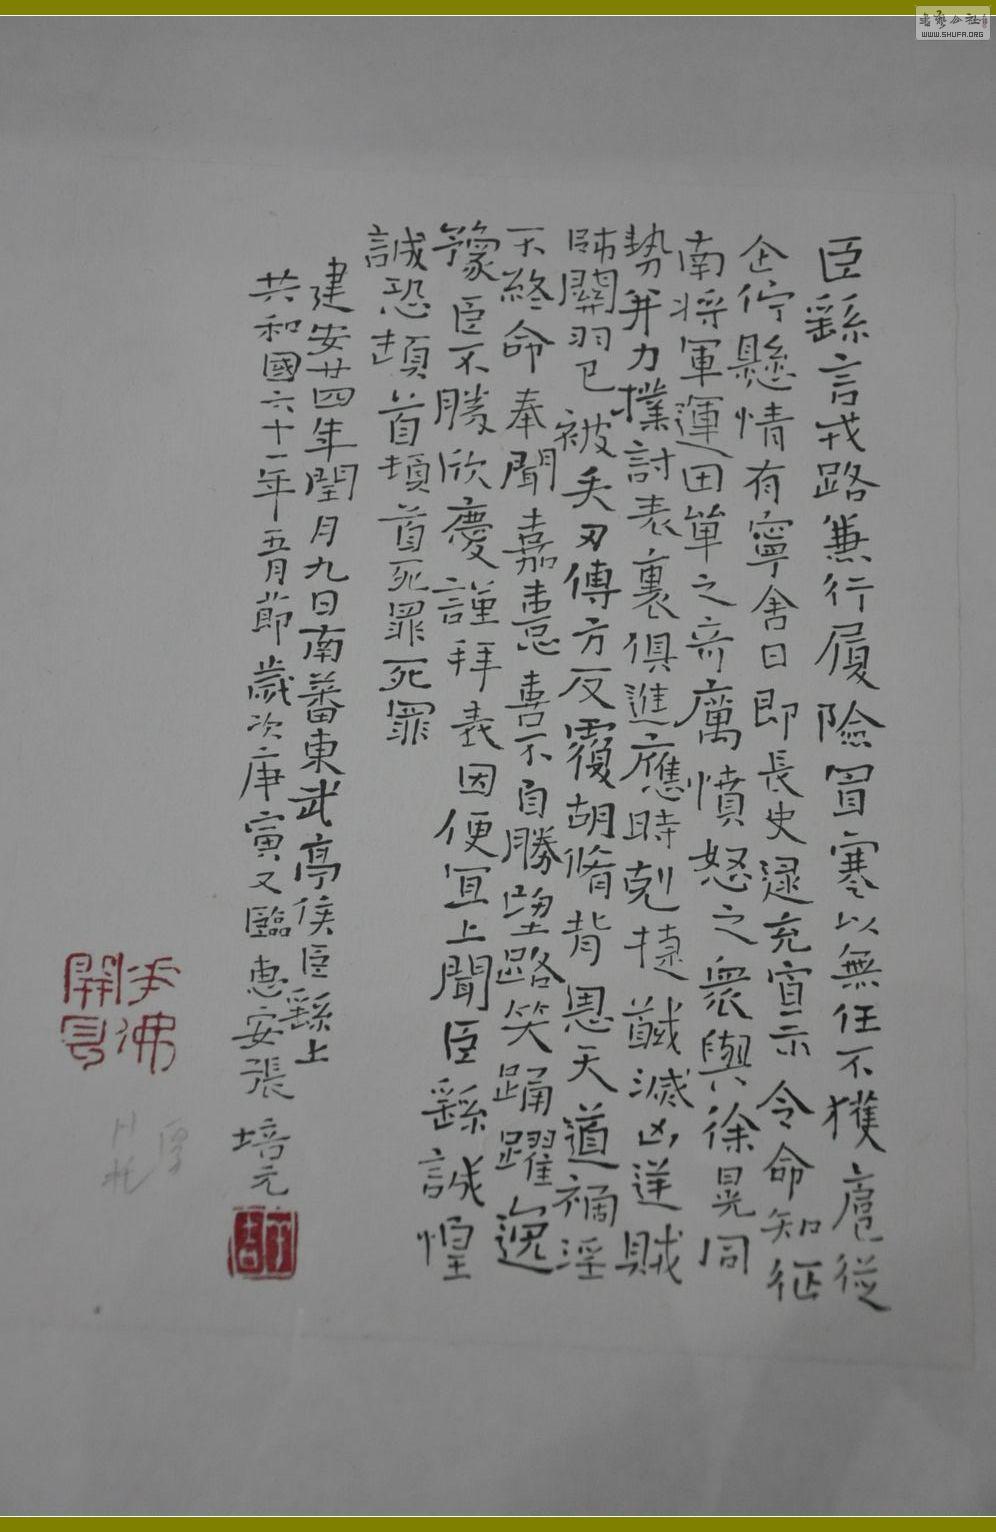 臣繇言戎路兼行履險冒寒以無任不獲扈從
企佇懸情有寧舍日即長史逯充宣示令命知征
南將軍運田單之奇厲憤怒之衆與徐晃同
勢并力撲討表裏俱進應時剋捷馘滅凶逆賊
帥關羽已被矢刃傅方反覆胡脩背恩天道禍淫
不終命奉聞嘉憙喜不自勝望路笑踊躍逸
豫臣不勝欣慶謹拜表因便宜上聞臣繇誠惶
誠恐頓首頓首死罪死罪
建安廿四年閏月九日南蕃東武亭侯臣繇上
共和國六十一年五月節歲次庚寅又臨惠安張培元
WWW.SHUFA.ORG